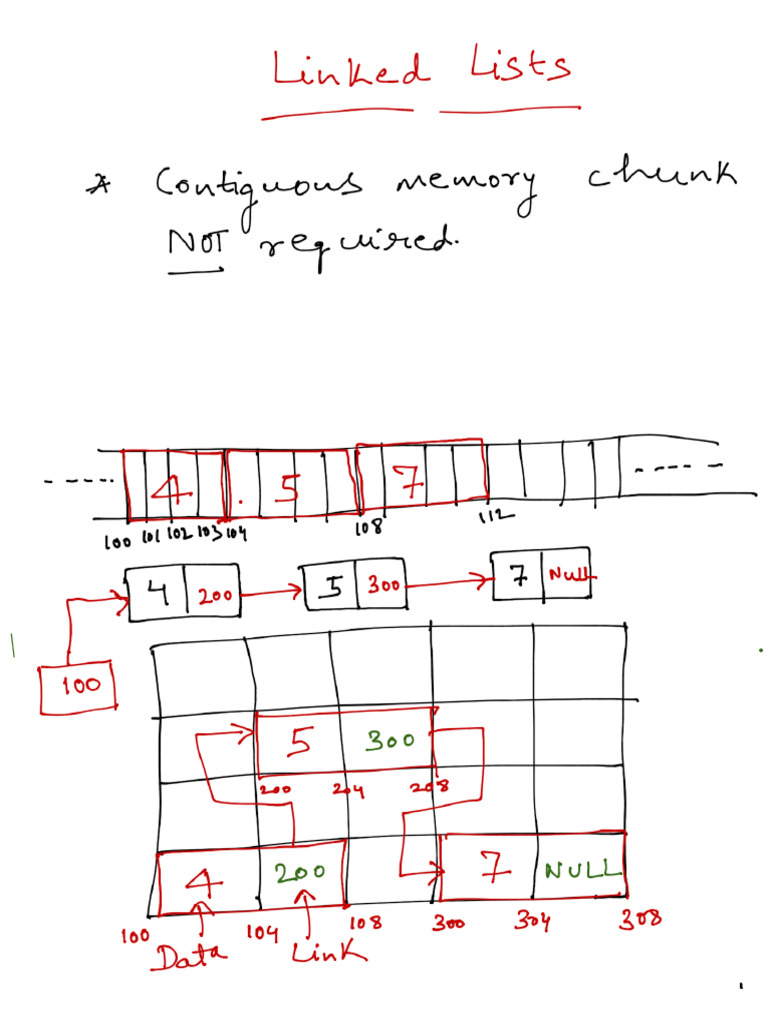 Linked Lists
* Contiguous memory chunk
NOT required.
4 5 7
100 101 102 103 104 108 112
4 200 5 300 7 Null
100
5 300
200 204 208
4 200 7 NULL
100 104 108 300 304 308
Data Link